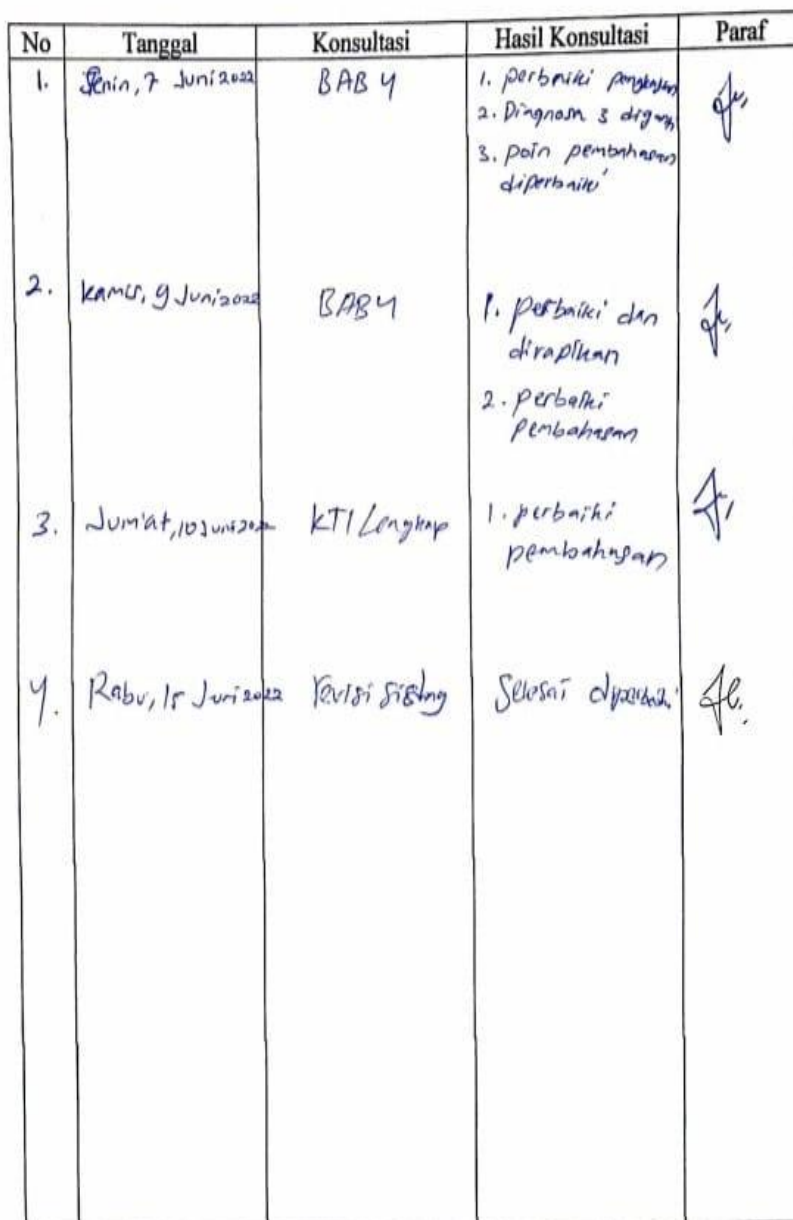 No Tanggal Konsultasi Hasil Konsultasi Paraf
1. Senin, 7 Juni 2022 BAB 4 1. perbaiki pengkajian
2. Diagnosa 3 diganti
3. poin pembahasan
diperbaiki
2. Kamis, 9 Juni 2022 BAB 4 1. perbaiki dan
dirapikan
2. perbaiki
pembahasan
3. Jum'at, 10 Juni 2022 KTI Lengkap 1. perbaiki
pembahasan
4. Rabu, 15 Juni 2022 revisi sidang Selesai diperbaiki